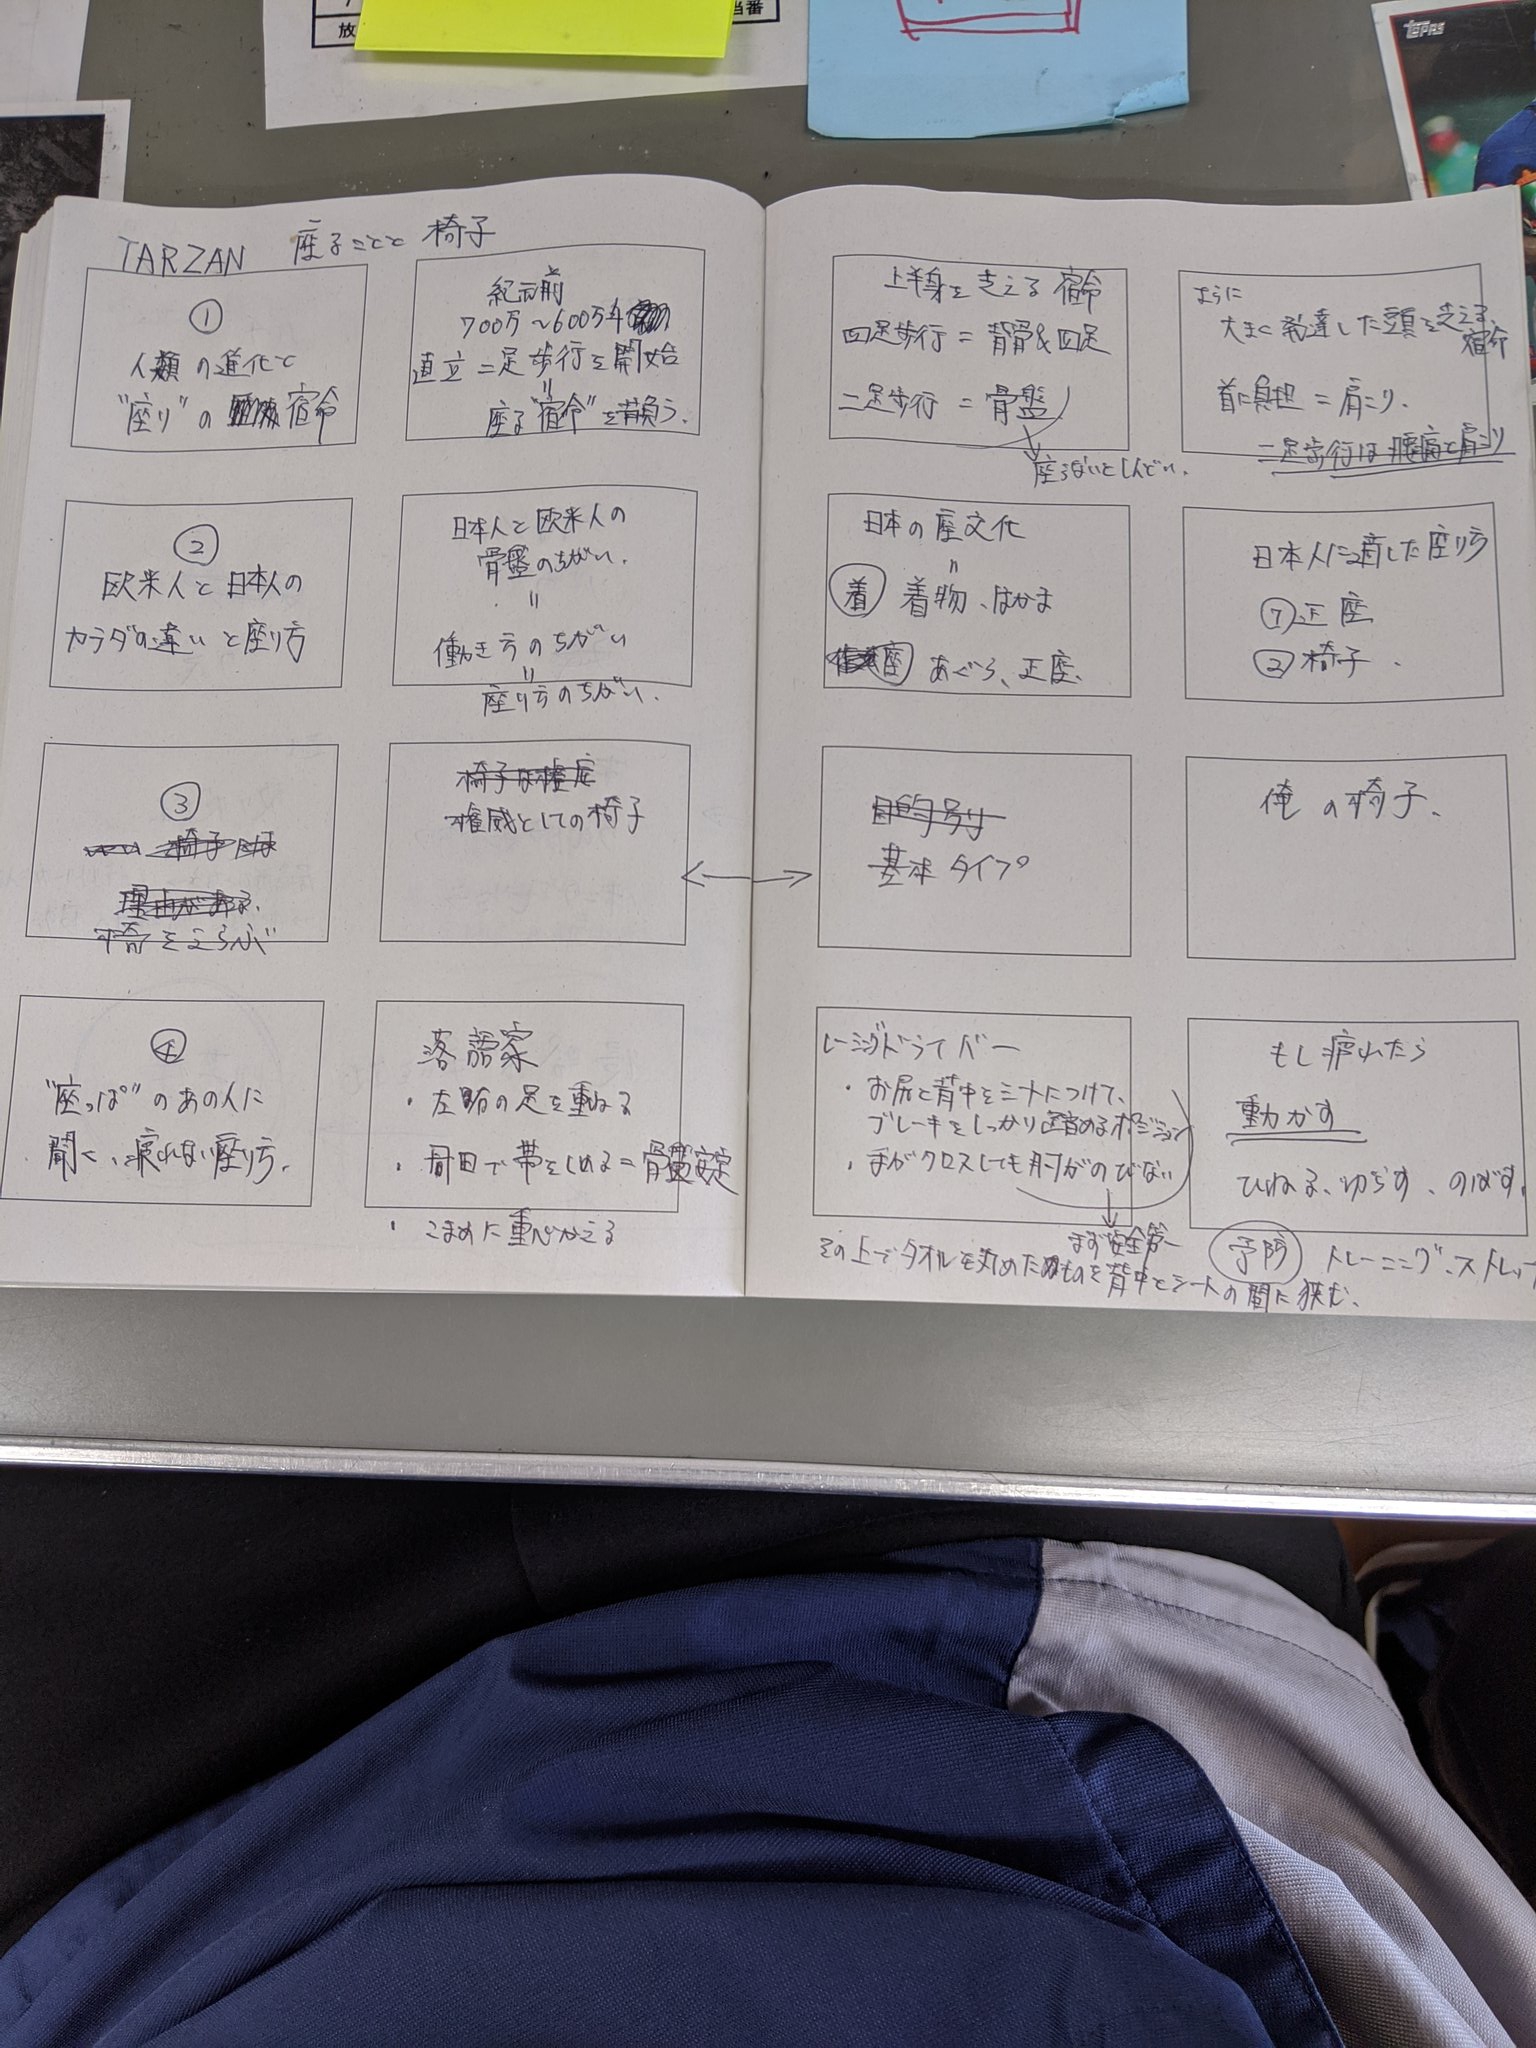 当番
放
TOPPS
TARZAN 座ることと椅子
①
人類の進化と
"座り"の宿命
紀元前
700万〜600万年
直立二足歩行を開始
=
座る"宿命"を背負う.
上半身を支える宿命
四足歩行=背骨&四足
二足歩行=骨盤
座らないとしんどい.
ように
大きく発達した頭を支える
宿命
首に負担=肩こり.
二足歩行は腰痛と肩こり
②
欧米人と日本人の
カラダの違いと座り方
日本人と欧米人の
骨盤のちがい.
=
働き方のちがい
=
座り方のちがい.
日本の座文化
=
着 着物、はかま
座 あぐら、正座.
日本人に適した座り方
①正座
②椅子.
③
椅子には
理由がある.
椅子をえらぶ
椅子は権
権威としての椅子
目的別
基本タイプ
俺の椅子.
④
"座っぱ"のあの人に
聞く、疲れない座り方.
落語家
・左右の足を重ねる
・骨盤で帯をしめる=骨盤安定
・こまめに重心かえる
レーシングドライバー
・お尻と背中をシートにつけて、
ブレーキをしっかり踏めるポジション
・手がクロスしても肘がのびない
まず安全第一
その上でタオルを丸めたものを背中とシートの間に挟む.
もし疲れたら
動かす
ひねる、ゆらす、のばす.
予防 トレーニング、ストレッ